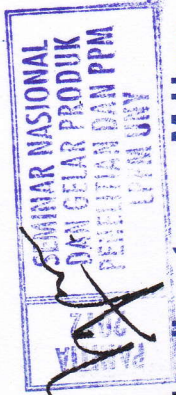 SEMINAR NASIONAL
DAN GELAR PRODUK
PENELITIAN DAN PPM
LPPM UNY
PANITIA
2012